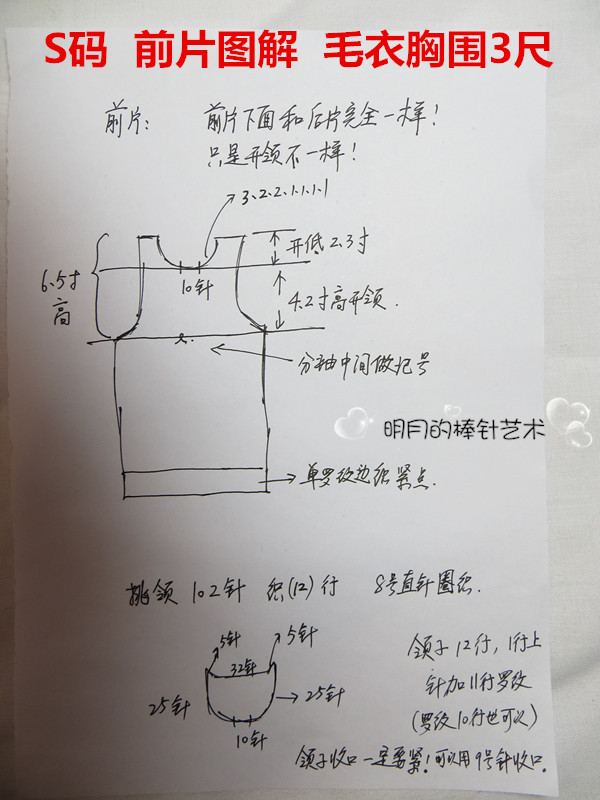 S码 前片图解 毛衣胸围3尺
前片: 前片下面和后片完全一样!
只是开领不一样!
3.2.2.1.1.1.1
开低2.3寸
6.5寸高
10针
4.2寸高开领.
分袖中间做记号
明月的棒针艺术
单罗纹边织紧点.
挑领 102针 织(12)行 8号直针圈织.
5针
5针
32针
25针
25针
10针
领子12行,1行上
针加11行罗纹
(罗纹10行也可以)
领子收口一定要紧!可以用9号针收口.